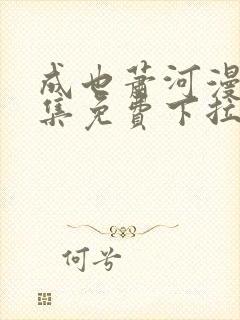 成也萧河漫
集免費下拉
何兮